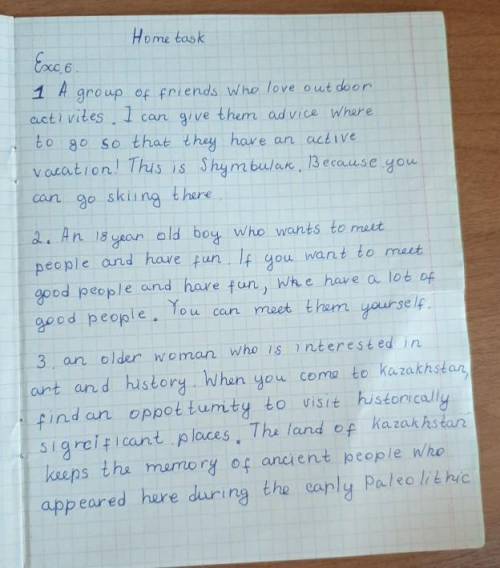 Home task
Exc 6.
1 A group of friends who love outdoor
activites. I can give them advice where
to go so that they have an active
vacation! This is Shymbulak. Because you
can go skiing there.
2. An 18 year old boy who wants to meet
people and have fun. If you want to meet
good people and have fun, whe have a lot of
good people. You can meet them yourself.
3. an older woman who is interested in
art and history. When you come to Kazakhstan,
find an oppottumity to visit historically
signcificant places. The land of Kazakhstan
keeps the memory of ancient people who
appeared here during the early Paleolithic